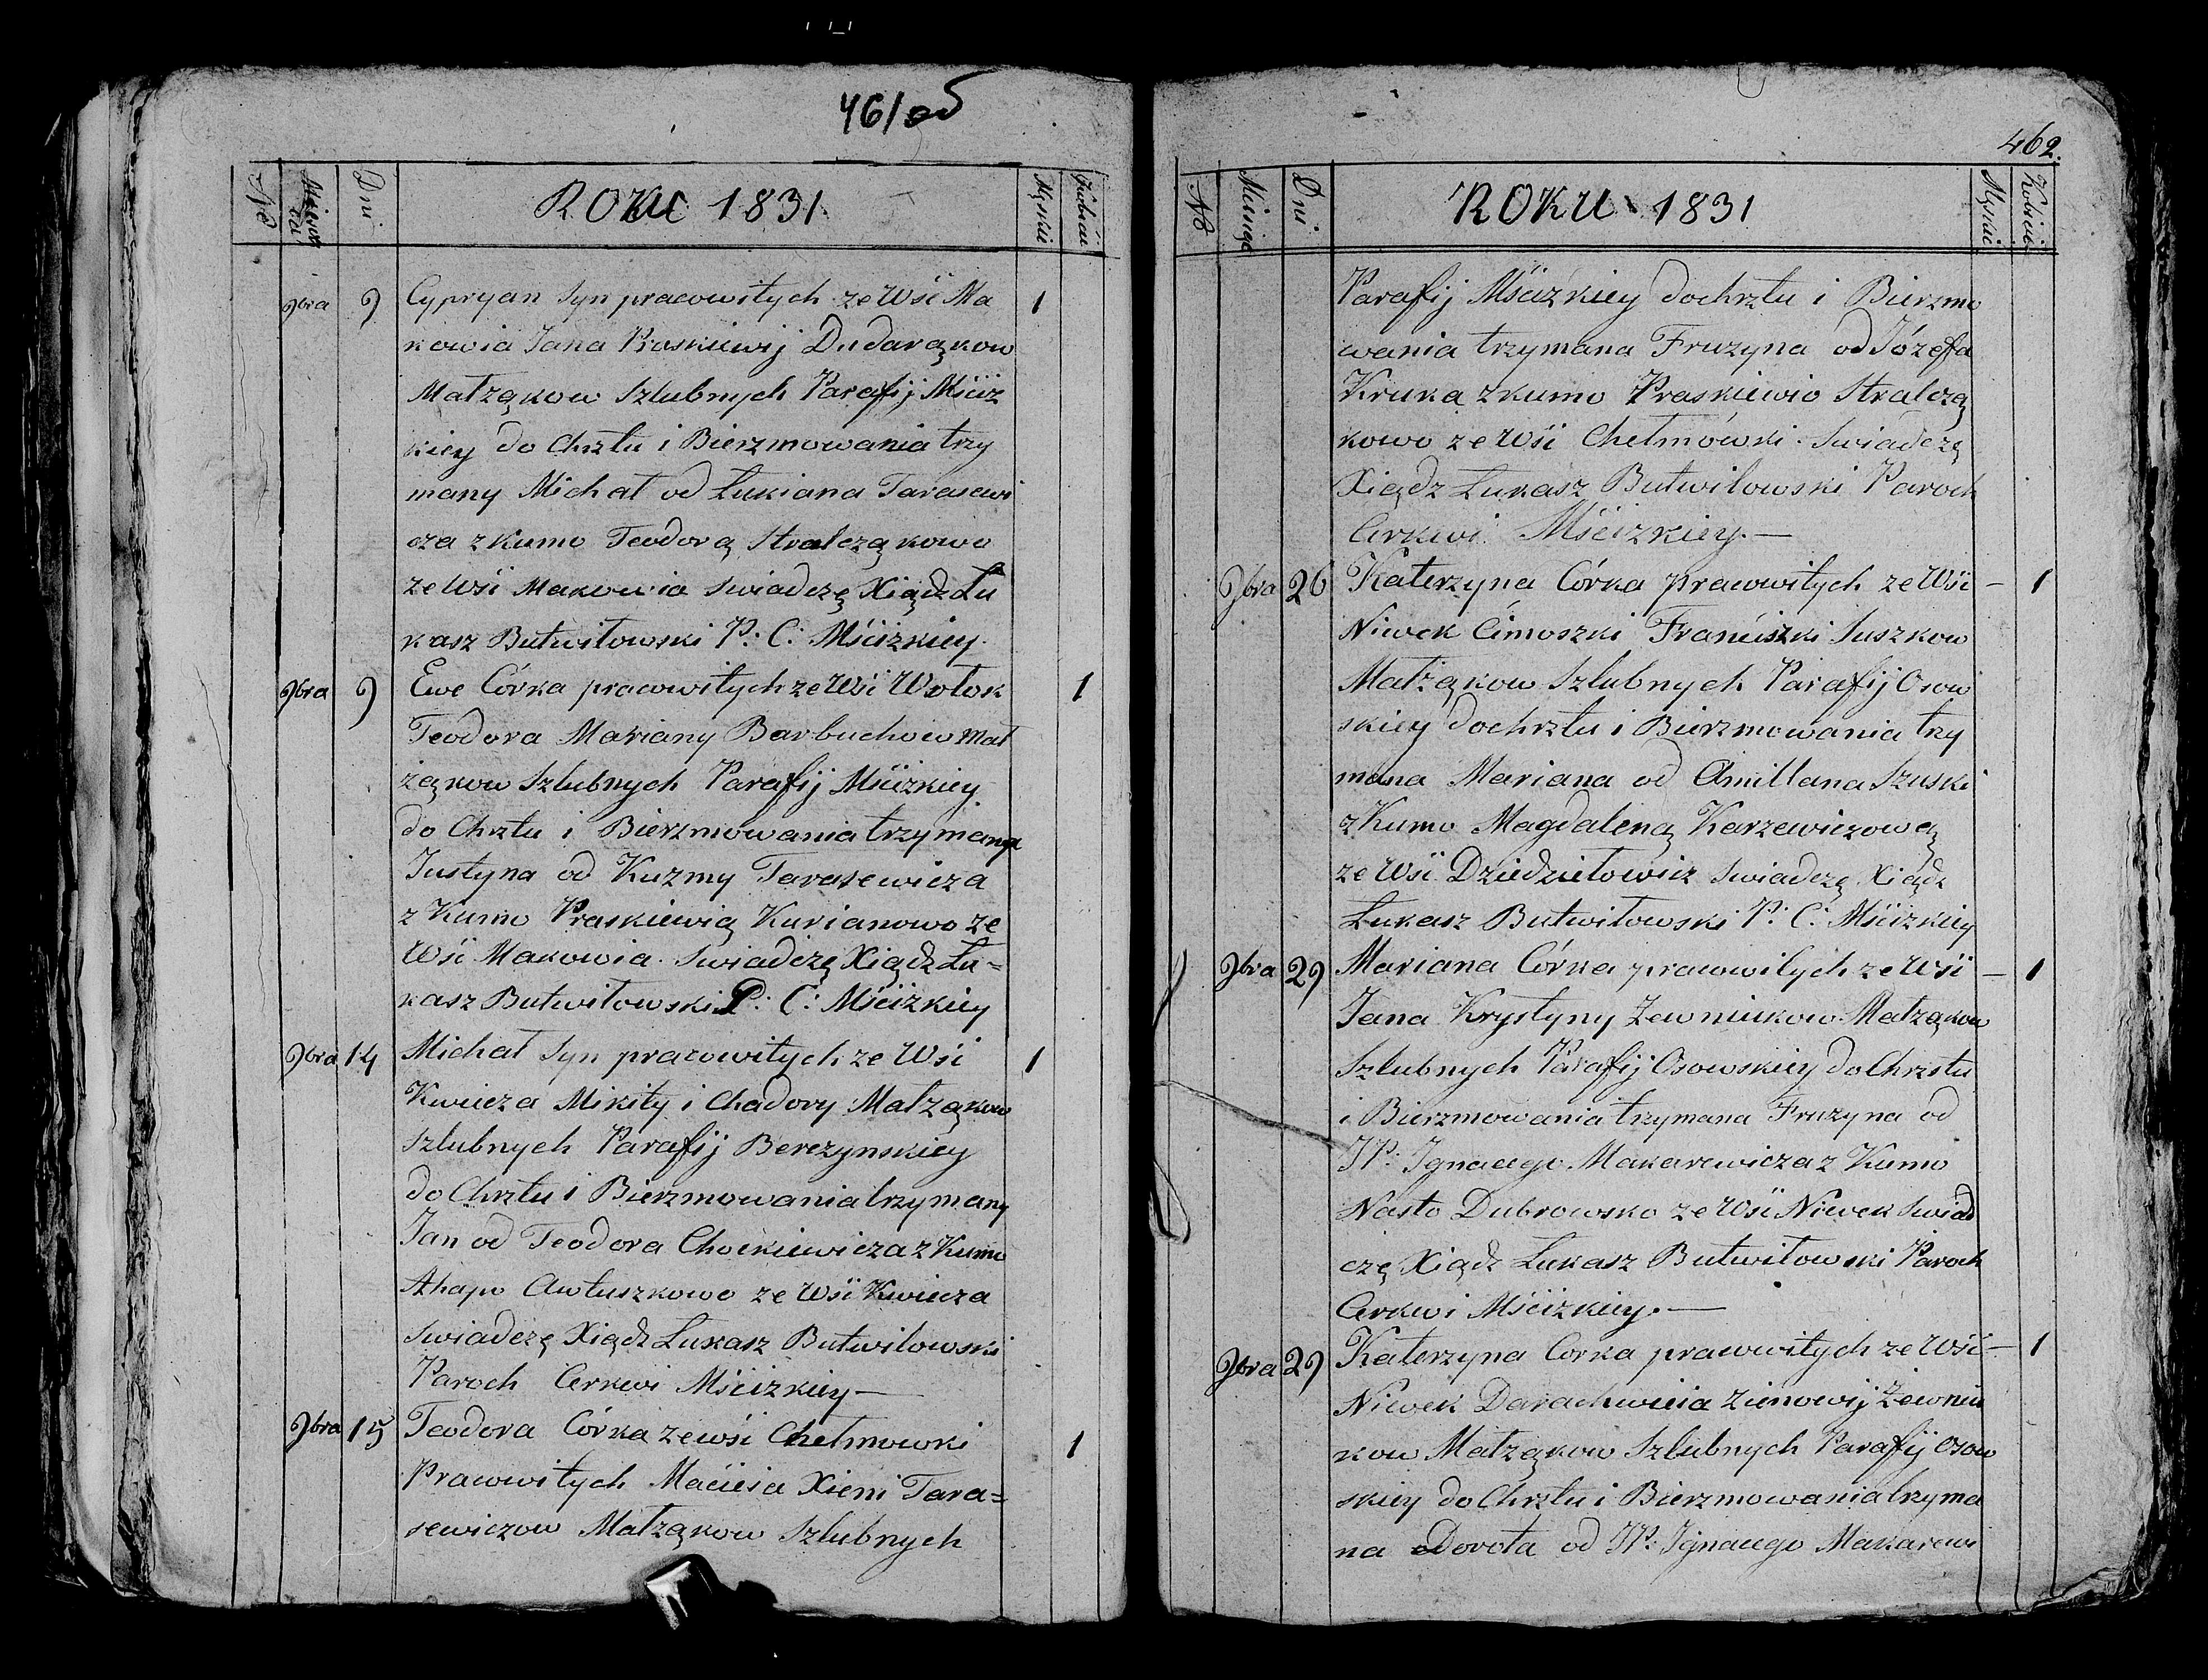 461об
Nro Miesią ca Dni ROKU 1831 Męskie Kobiéce
9bra 9 Cypryan Syn pracowitych ze Wśi Ma 1
kowia Jana Proskiewij Dudarąkow
Małżąkow Szlubnych Parafij Mściż
kiey do Chrztu i Bierzmowania trzy
many Michał od Łukiana Tarasewi
cza z kumo Teodorą Stralczą kowo
ze Wśi Makowia Swiadczę Xiądz Łu
kasz Butwiłowski P: C: Mściżkiey.
9bra 9 Ewe Córka pracowitych ze Wśi Wołok 1
Teodora Mariany Barbuchow Mał
żąkow Szlubnych Parafij Mściżkiey
do Chrztu i Bierzmowania trzymana
Justyna od Kuzmy Tarasewicza
z Kumo Praskiewią Kurianowo ze
Wśi Makowia Swiadczę Xiądz Łu=
kasz Butwiłowski P: C: Mściżkiey
9bra 14 Michał Syn pracowitych ze Wśi 1
Kwicza Mikity i Chadory Małżąkow
Szlubnych Parafij Berezynskiey
do Chrztu i Bierzmowania trzymany
Jan od Teodora Chockiewicza z Kumo
Ahapo Awłuszkowo ze Wśi Kwicza
Swiadczę Xiądz Łukasz Butwiłowski
Paroch Cerkwi Mściżkiey—
9bra 15 Teodora Córka ze wśi Chełmowki 1
Pracowitych Macieia Xieni Tara=
sewiczow Małżąkow Szlubnych
462.
No Miesiąc Dni. ROKU 1831 Męskie Kobiéce
Parafij Mściżkiey do chrztu i Bierzmo
wania trzymana Fruzyna od Józefa
Kruka z kumo Praskiewio Stralczą
kowo ze Wśi Chełmówki. Swiadczę
Xiądz Łukasz Butwiłowski Paroch
Cerkwi Mściżkiey.—
9bra 26 Katerzyna Córka pracowitych ze Wśi – 1
Niwek Cimoszki Franciszki Suszkow
Małżąkow Szlubnych Parafij Osow
skiey do chrztu i Bierzmowania trzy
mana Mariana od Amillana Szuski
z Kumo Magdaleną Karzewiczową
ze Wśi Dziedziłowicz Swiadczę Xiądz
Łukasz Butwiłowski P: C: Mściżkiey
9bra 29 Mariana Córka pracowitych ze Wśi – 1
Jana Krystyny Zewniukow Małżąkow
Szlubnych Parafij Osowskiey do Chrztu
i Bierzmowania trzymana Fruzyna od
JP: Jgnacego Makarewicza z Kumo
Nasto Dubrowsko ze Wśi Niwek Swiad
czę Xiądz Łukasz Butwiłowski Paroch
Cerkwi Mściżkiey.—
9bra 29 Katerzyna Corka pracowitych ze Wśi– 1
Niwek Darachwieia Zienowij Żewniu
kow Małżąkow Szlubnych Parafij Osow
skiey do Chrztu i Bierzmowania trzyma
na Dorota od JP: Jgnacego Makarewi